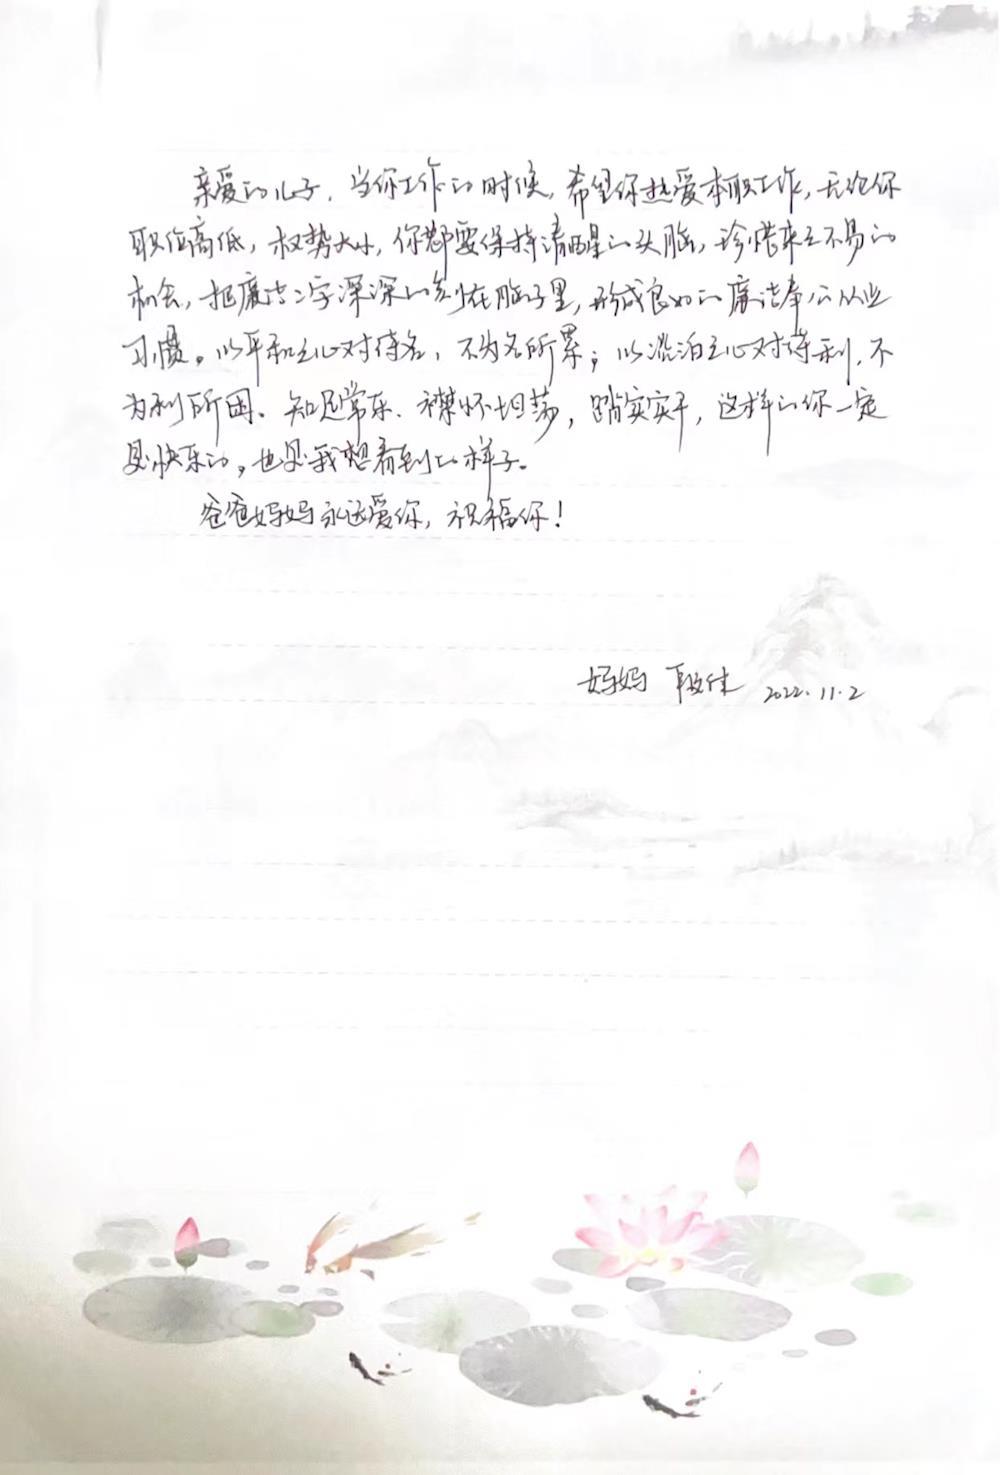 亲爱的儿子，当你工作的时候，希望你热爱本职工作，无论你
职位高低，权势大小，你都要保持清醒的头脑，珍惜来之不易的
机会，把廉洁二字深深的刻在脑子里，形成良好的廉洁奉公从业
习惯。以平和之心对待名，不为名所累；以淡泊之心对待利，不
为利所困、知足常乐、襟怀坦荡，踏实实干，这样的你一定
是快乐的，也是我想看到的样子。
爸爸妈妈永远爱你，祝福你！
妈妈 2022.11.2